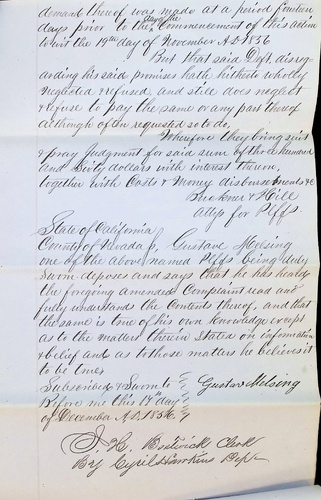 demand thereof was made at a period fourteen
days prior to the day of the Commencement of this action
to wit the 19th day of November A.D. 1856
But that said Deft. disreg-
arding his said promises hath hitherto wholly
neglected & refused, and still does neglect
& refuse to pay the same or any part thereof
although often requested so to do.
Wherefore they bring suit
& pray Judgment for said sum of three hundred
and Sixty dollars with interest thereon,
together with Costs & Money disbursements &c
Buckner & Hill
attys for Plffs
State of California
County of Nevada Gustave Melsing
one of the above named Plffs being duly
Sworn deposes and says that he has heard
the foregoing amended Complaint read and
fully understands the Contents thereof, and that
the same is true of his own knowledge except
as to the matters therein Stated on information
& belief and as to those matters he believes it
to be true.
Subscribed & Sworn to Gustav Melsing
Before me this 17th day
of December A.D. 1856.
J. H. Bostwick Clerk
By Cyril Hawkins Dep